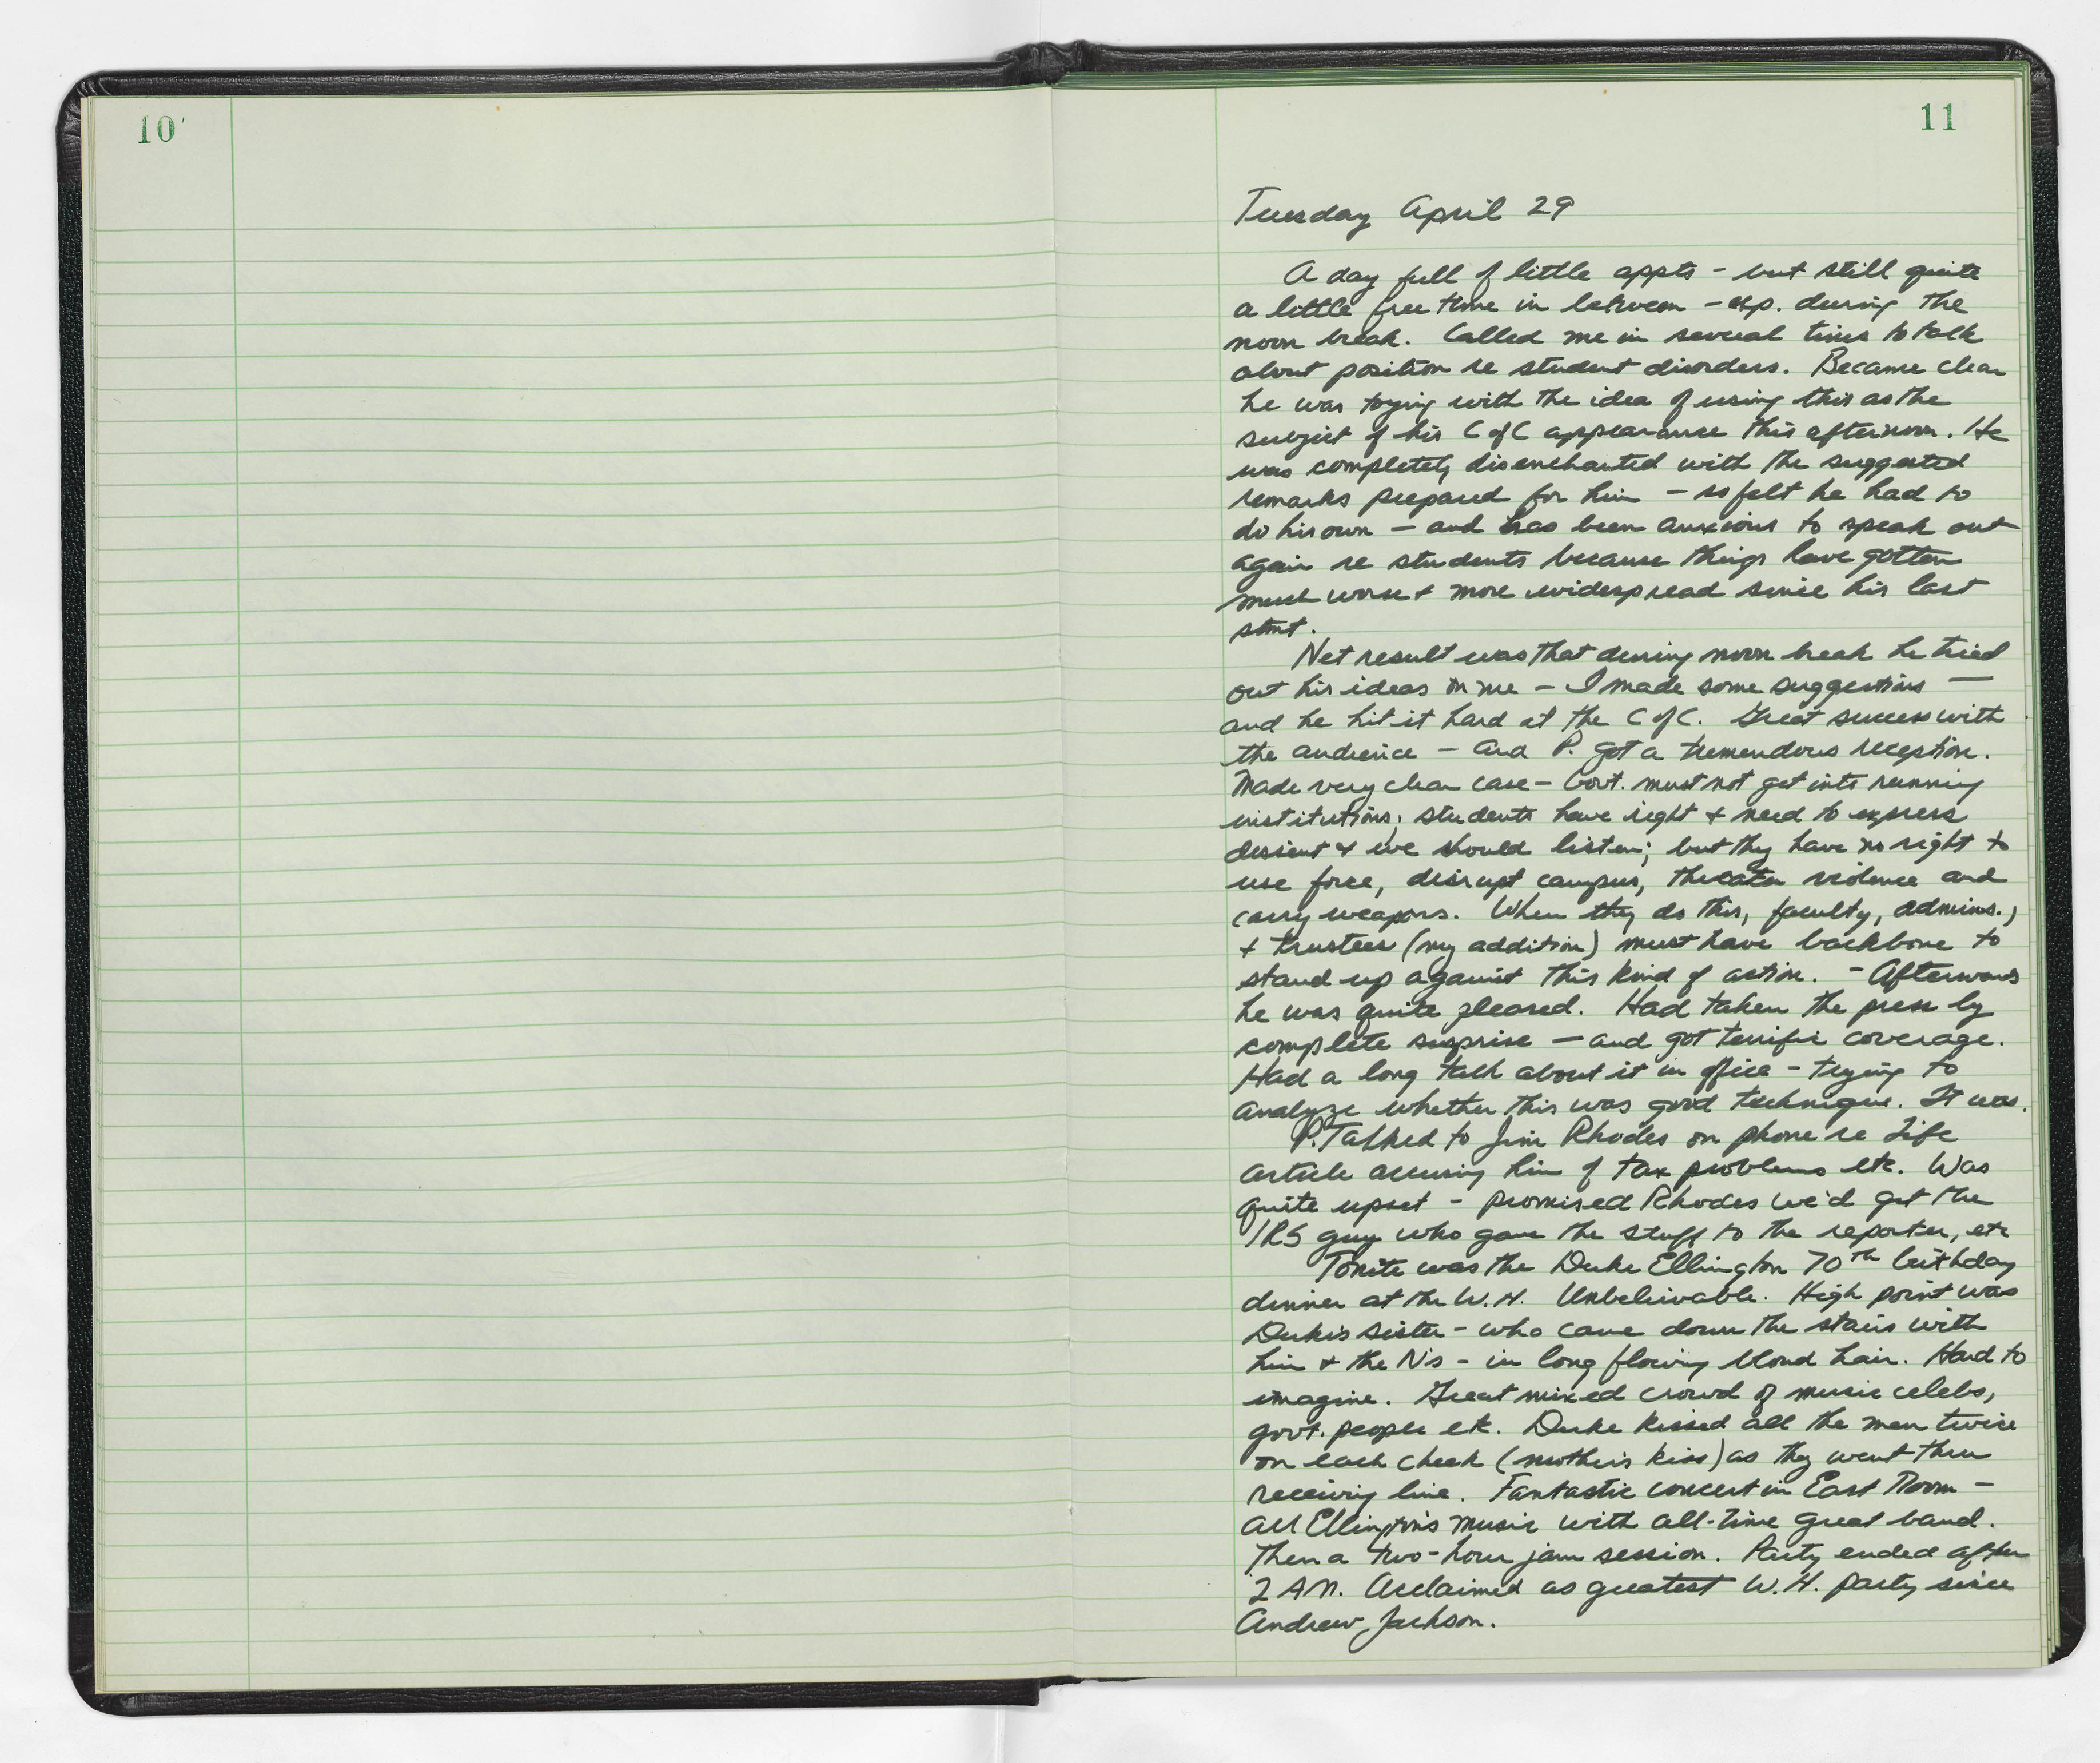 10
11
Tuesday April 29
A day full of little appts - but still quite
a little free time in between - esp. during the
noon break. Called me in several times to talk
about position re student disorders. Became clear
he was toying with the idea of using this as the
subject of his C of C appearance this afternoon. He
was completely disenchanted with the suggested
remarks prepared for him - so felt he had to
do his own - and has been anxious to speak out
again re students because things have gotten
much worse + more widespread since his last
stmt.
Net result was that during noon break he tried
out his ideas on me - I made some suggestions -
and he hit it hard at the C of C. Great success with
the audience - and P. got a tremendous reception.
Made very clear case - Govt. must not get into running
institutions; students have right + need to express
dissent + we should listen; but they have no right to
use force, disrupt campus, threaten violence and
carry weapons. When they do this, faculty, admins.,
+ trustees (my addition) must have backbone to
stand up against this kind of action. - Afterwards
he was quite pleased. Had taken the press by
complete surprise - and got terrific coverage.
Had a long talk about it in office - trying to
analyze whether this was good technique. It was.
P. Talked to Jim Rhodes on phone re Life
article accusing him of tax problems etc. Was
quite upset - promised Rhodes we'd get the
IRS guy who gave the stuff to the reporter, etc
Tonite was the Duke Ellington 70th birthday
dinner at the W.H. Unbelievable. High point was
Duke's sister - who came down the stairs with
him + the N's - in long flowing blond hair. Hard to
imagine. Great mixed crowd of music celebs,
govt. people etc. Duke kissed all the men twice
on each cheek (mother's kiss) as they went thru
receiving line. Fantastic concert in East Room -
all Ellington's music with all-time great band.
Then a two-hour jam session. Party ended after
2 AM. Acclaimed as greatest W.H. party since
Andrew Jackson.